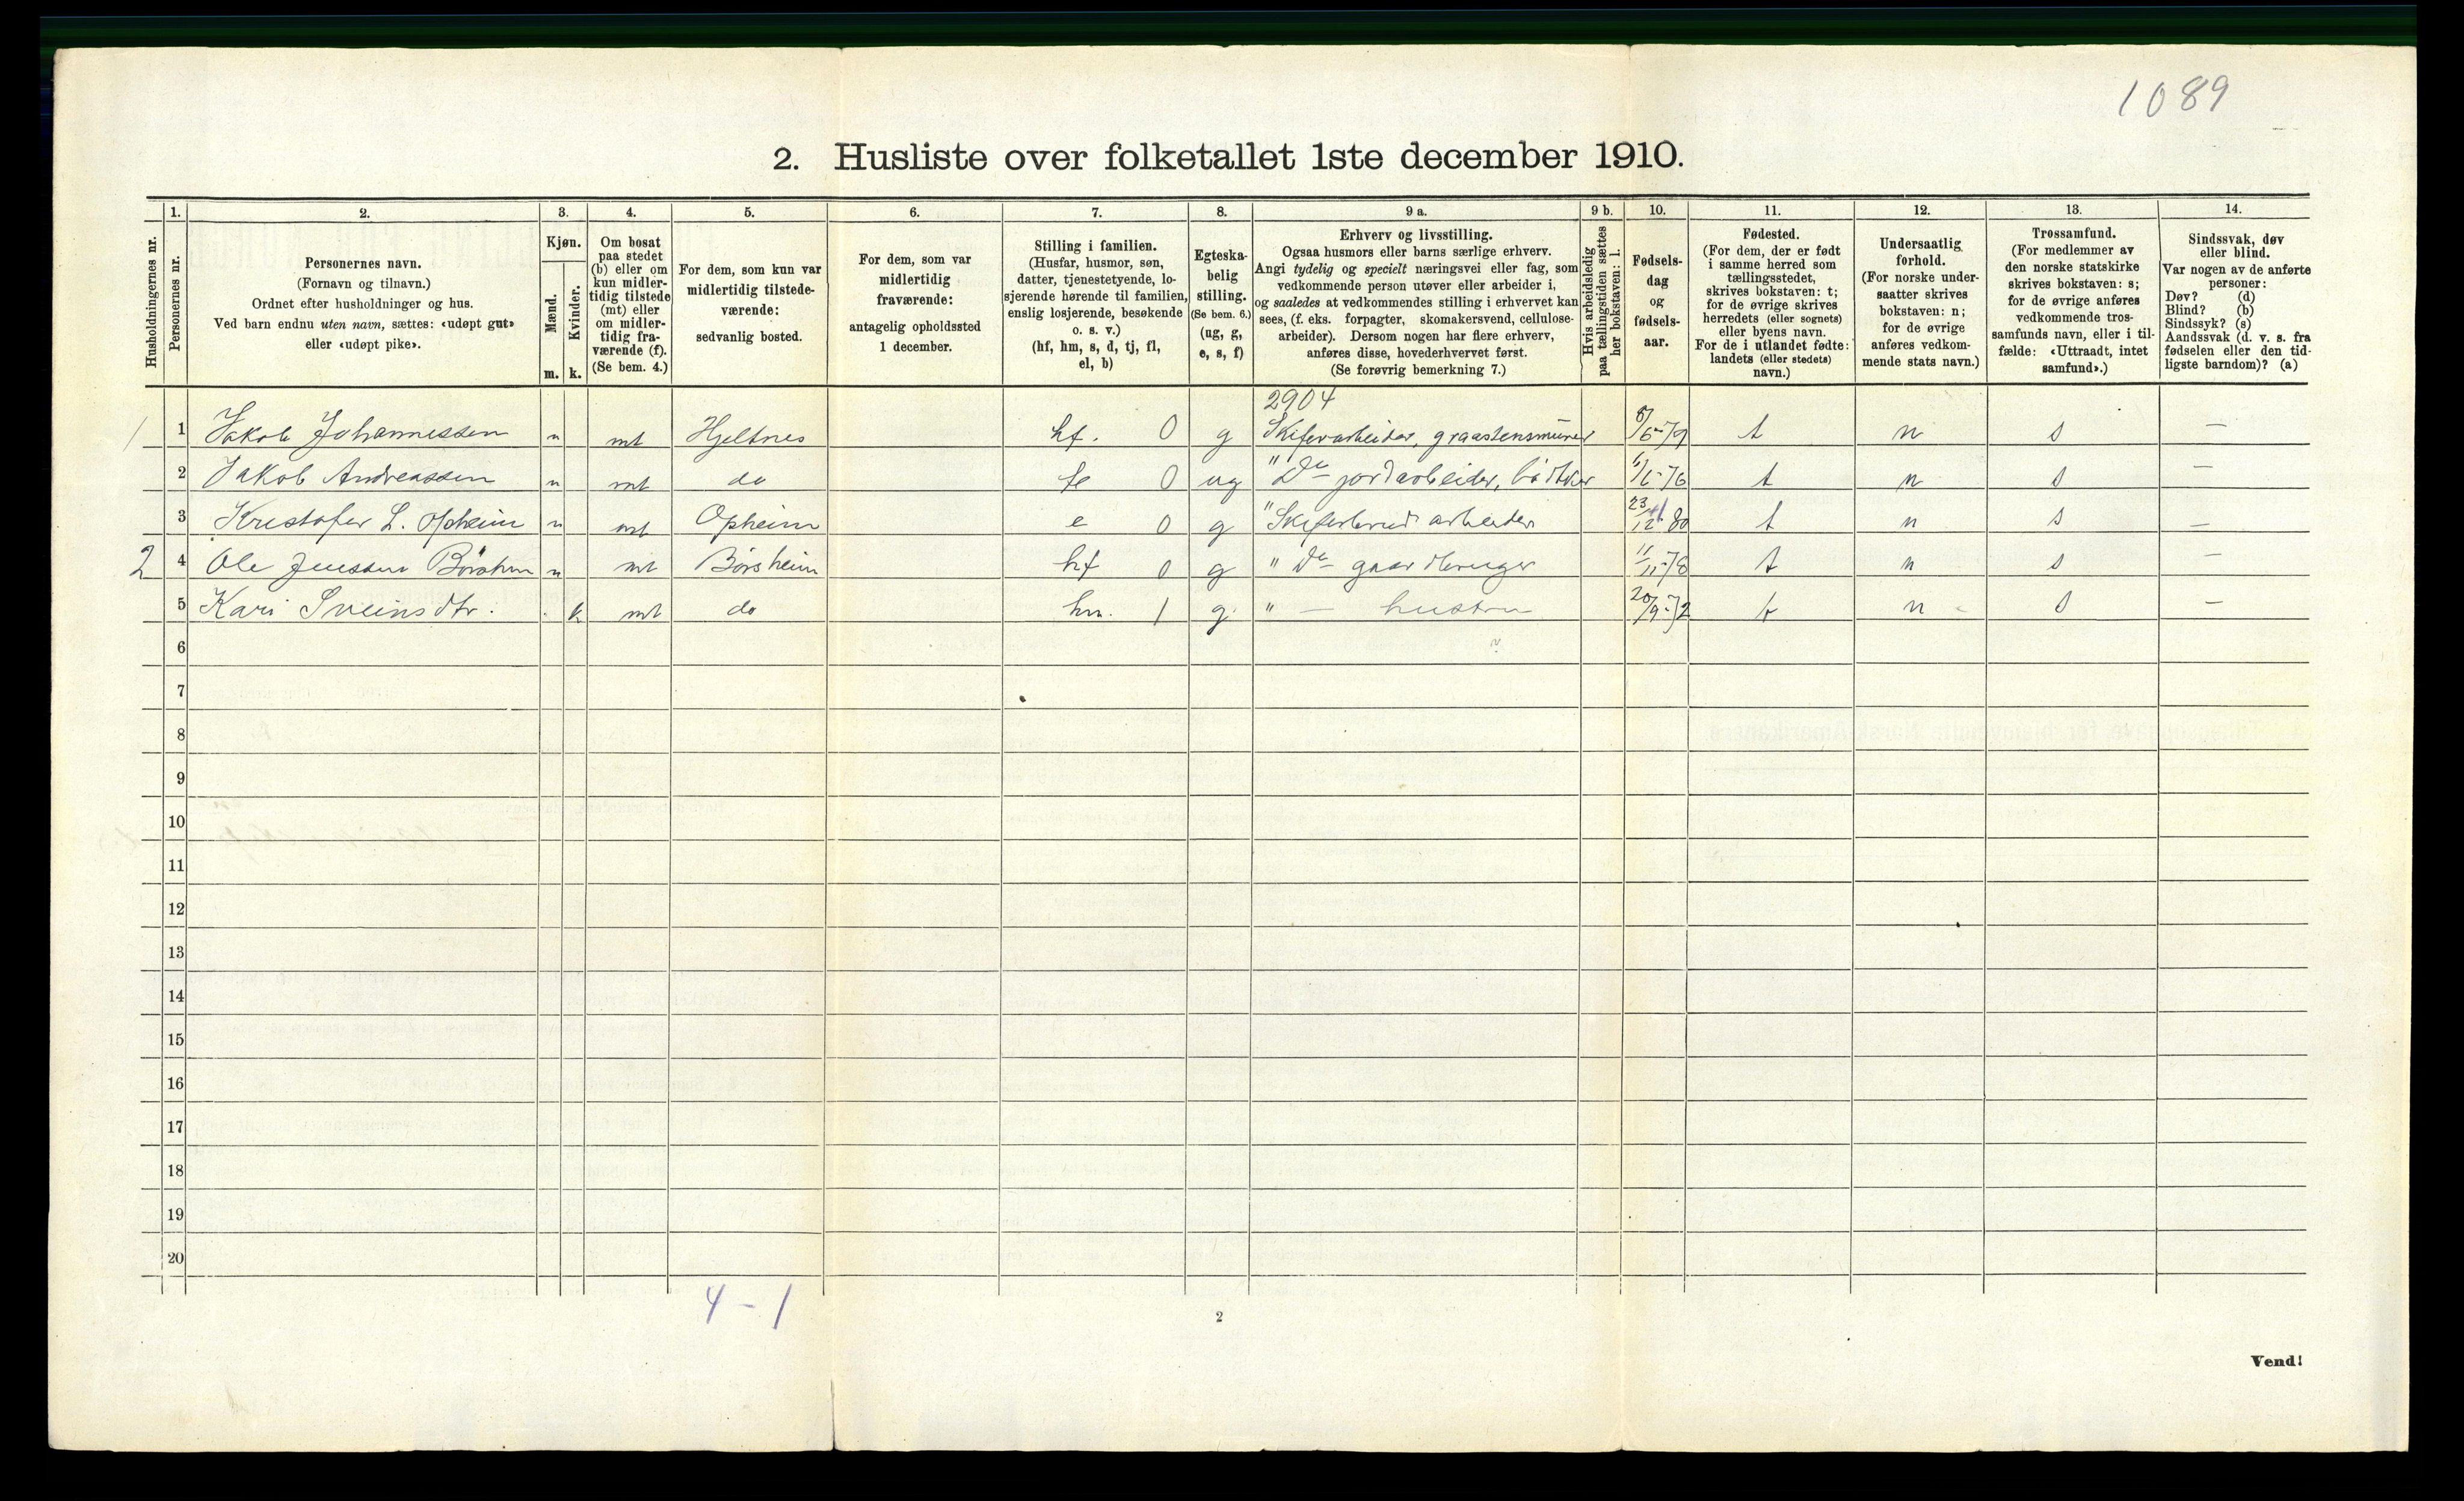 1089
2. Husliste over folketallet 1ste december 1910.
Husholdningernes nr.
1. Personernes nr.
2. Personernes navn.
(Fornavn og tilnavn.)
Ordnet efter husholdninger og hus.
Ved barn endnu uten navn, sættes: «udøpt gut»
eller «udøpt pike».
3. Kjøn.
Mænd. m.
Kvinder. k.
4. Om bosat
paa stedet
(b) eller om
kun midler-
tidig tilstede
(mt) eller
om midler-
tidig fra-
værende (f).
(Se bem. 4.)
5. For dem, som kun var
midlertidig tilstede-
værende:
sedvanlig bosted.
6. For dem, som var
midlertidig
fraværende:
antagelig opholdssted
1 december.
7. Stilling i familien.
(Husfar, husmor, søn,
datter, tjenestetyende, lo-
sjerende hørende til familien,
enslig losjerende, besøkende
o. s. v.)
(hf, hm, s, d, tj, fl,
el, b)
8. Egteska-
belig
stilling.
(Se bem. 6.)
(ug, g,
e, s, f)
9 a. Erhverv og livsstilling.
Ogsaa husmors eller barns særlige erhverv.
Angi tydelig og specielt næringsvei eller fag, som
vedkommende person utøver eller arbeider i,
og saaledes at vedkommendes stilling i erhvervet kan
sees, (f. eks. forpagter, skomakersvend, cellulose-
arbeider). Dersom nogen har flere erhverv,
anføres disse, hovederhvervet først.
(Se forøvrig bemerkning 7.)
9 b. Hvis arbeidsledig
paa tællingstiden sættes
her bokstaven: l.
10. Fødsels-
dag
og
fødsels-
aar.
11. Fødested.
(For dem, der er født
i samme herred som
tællingsstedet,
skrives bokstaven: t;
for de øvrige skrives
herredets (eller sognets)
eller byens navn.
For de i utlandet fødte:
landets (eller stedets)
navn.)
12. Undersaatlig
forhold.
(For norske under-
saatter skrives
bokstaven: n;
for de øvrige
anføres vedkom-
mende stats navn.)
13. Trossamfund.
(For medlemmer av
den norske statskirke
skrives bokstaven: s;
for de øvrige anføres
vedkommende tros-
samfunds navn, eller i til-
fælde: «Uttraadt, intet
samfund».)
14. Sindssvak, døv
eller blind.
Var nogen av de anførte
personer:
Døv? (d)
Blind? (b)
Sindssyk? (s)
Aandssvak (d. v. s. fra
fødselen eller den tid-
ligste barndom)? (a)
2904
1 1 Jakob Johannessen m mt Hjeltnes hf. 0 g Skiferarbeider, graastensmurer 8/6-79 t n s —
2 Jakob Andreassen m mt do fl 0 ug " Do jordarbeider, bødtker 6/6-76 t n s —
3 Kristofer L. Opheim m mt Opheim e 0 g " Skiferbrud arbeider 23/12 80 t n s —
2 4 Ole Jenssen Børsheim m mt Børsheim hf 0 g " Do gaardbruger 11/11-78 t n s —
5 Kari Sveinsdtr. k mt do hm. 1 g. " — hustru 20/9-72 t n s —
6
7
8
9
10
11
12
13
14
15
16
17
18
19
20
4 - 1
2
Vend!